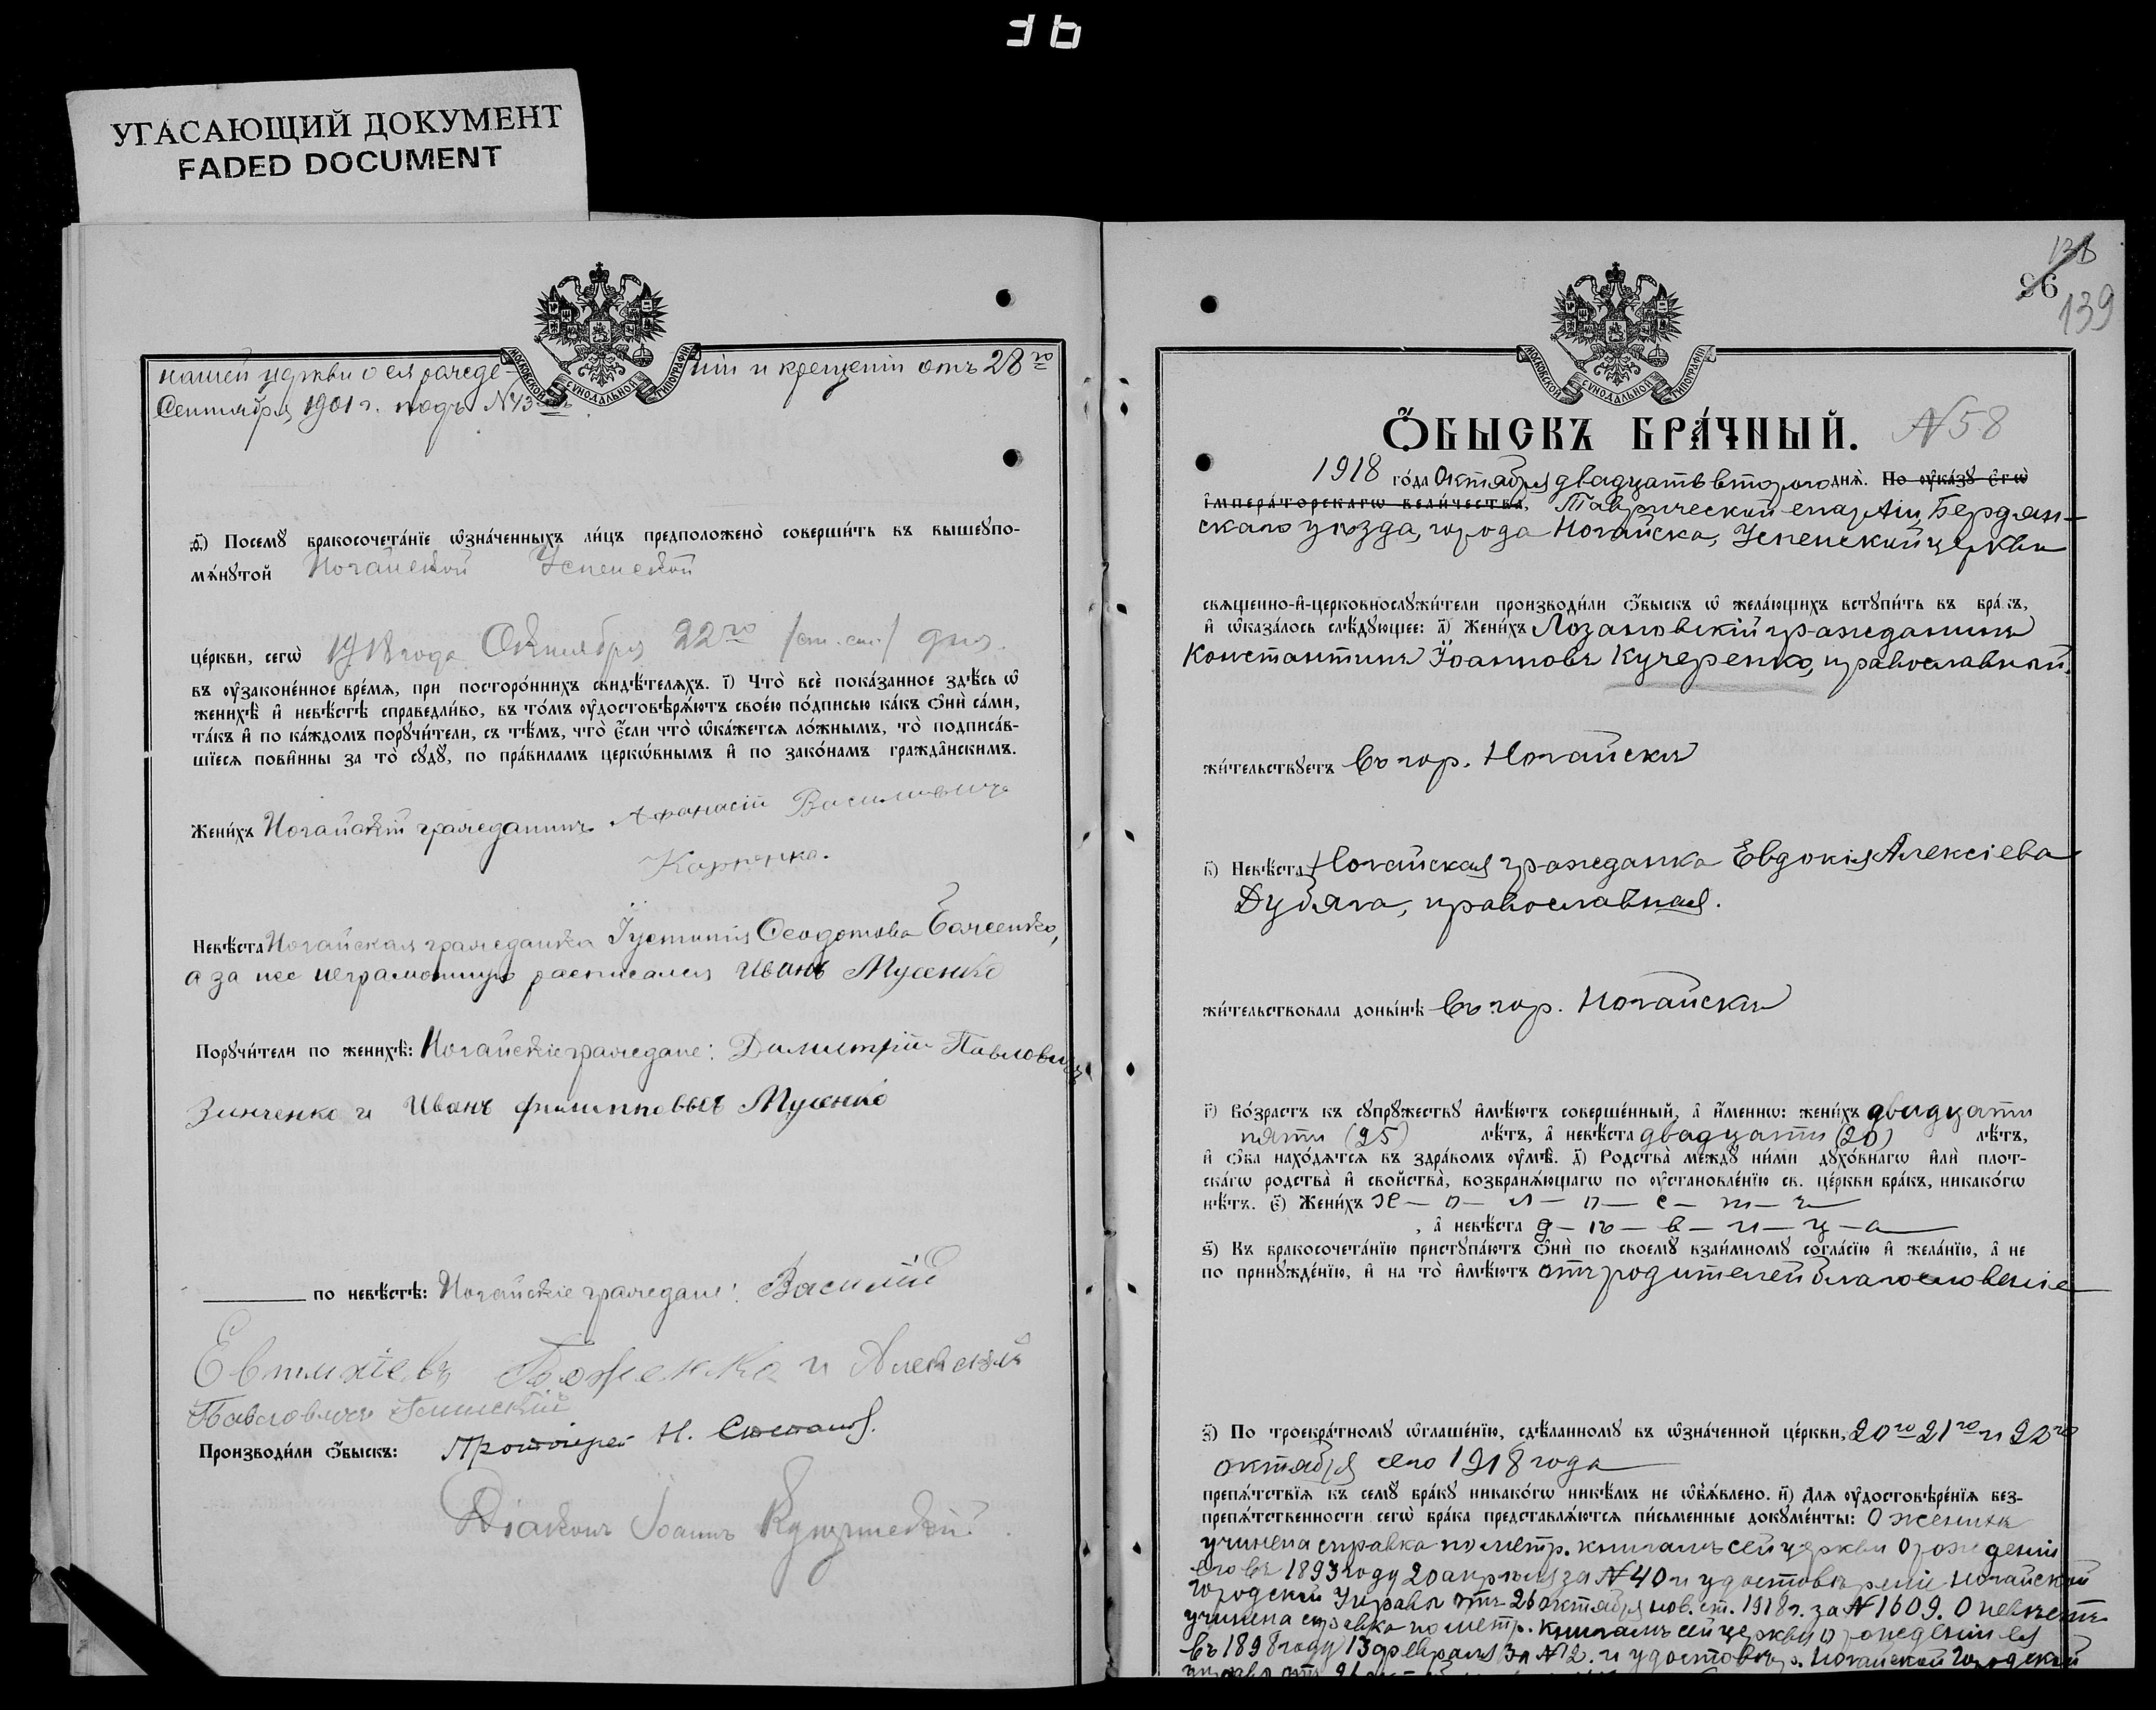 36
УГАСАЮЩИЙ ДОКУМЕНТ
FADED DOCUMENT
МОСКОВСКОЙ СѴНОДАЛЬНОЙ ТИПОГРАФІИ
нашей церкви о ея рожде-ніи и крещеніи отъ 28го
Сентября 1901 г. подъ №
ѳ҃) Посемꙋ̀ бракосочета́нїе ѡ҆зна́ченныхъ ли́цъ предположено̀ соверши́ть въ вышеꙋпо-
мѧ́нꙋтой Ногайской Успенской
це́ркви, сегѡ̀ 1918 года Октября 22го /ст. ст./ дня.
въ ᲂу҆законе́нное вре́мѧ, при посторо́ннихъ свидѣ́телѧхъ. і҃) Что̀ всѐ пока́занное здѣ́сь ѡ҆
женихѣ̀ и҆ невѣ́стѣ справедли́во, въ то́мъ ᲂу҆достовѣрѧ́ютъ свое́ю по́дписью ка́къ ѻ҆нѝ са́ми,
та́къ и҆ по ка́ждомъ порꙋчи́тели, съ тѣ́мъ, что̀ є҆́сли что̀ ѡ҆ка́жетсѧ ло́жнымъ, то̀ подписа́в-
шїесѧ пови́нны за то̀ сꙋдꙋ̀, по пра́виламъ церко́внымъ и҆ по зако́намъ гражда́нскимъ.
Жени́хъ Ногайскій гражданинъ Афанасій Василиевичъ
Карпенко.
Невѣ́ста Ногайская гражданка Іустинія Ѳеодотова Боженко,
а за нее неграмотную росписался Иванъ Мусенко
Порꙋчи́тели по женихѣ̀: Ногайскіе граждане: Димитрій Павловичъ
Зинченко и Иванъ Филипповичъ Мусенко
по невѣ́стѣ: Ногайскіе граждане: Василій
Евтихіевъ Боженко и Алексѣй
Павловичъ
Производи́ли ѻ҆́быскъ: Протоіерей Н.
Діаконъ Іоаннъ
138
96
139
МОСКОВСКОЙ СѴНОДАЛЬНОЙ ТИПОГРАФІИ
Ѻ҆́БЫСКЪ БРА́ЧНЫЙ. № 58
1918 го́да Октября двадцать второго днѧ̀. По ᲂу҆ка́зꙋ є҆гѡ̀
і҆мпера́торскагѡ вели́чества, Таврической епархіи, Бердян-
скаго уѣзда, города Ногайска, Успенской церкви
свѧще́нно-и҆-церковнослꙋжи́тели производи́ли ѻ҆́быскъ ѡ҆ жела́ющихъ встꙋпи́ть въ бра́къ,
и҆ ѡ҆каза́лось слѣ́дꙋющее: а҃) Жени́хъ Лозановскій гражданинъ
Константинъ Іоанновъ Кучеренко, православный.
жи́тельствꙋетъ въ гор. Ногайскѣ
в҃) Невѣ́ста Ногайская гражданка Евдокія Алексіева
Дубяга, православная.
жи́тельствовала доны́нѣ въ гор. Ногайскѣ
г҃) Во́зрастъ къ сꙋпрꙋ́жествꙋ и҆мѣ́ютъ соверше́нный, а҆ и҆́меннѡ: жени́хъ двадцати
пяти (25) лѣ́тъ, а҆ невѣ́ста двадцати (20) лѣ́тъ,
и҆ ѻ҆́ба нахо́дѧтсѧ въ здра́вомъ ᲂу҆мѣ̀. д҃) Родства̀ междꙋ̀ ни́ми дꙋхо́внагѡ и҆лѝ плот-
ска́гѡ родства̀ и҆ сво́йства̀, возбранѧ́ющагѡ по ᲂу҆становле́нїю св. це́ркви бра́къ, никако́гѡ
нѣ́тъ. є҃) Жени́хъ х – о – л – о – с – т – ъ
, а҆ невѣ́ста д – ѣ – в – и – ц – а
ѕ҃) Къ бракосочета́нїю пристꙋпа́ютъ ѻ҆нѝ по своемꙋ̀ взаи́мномꙋ согла́сїю и҆ жела́нїю, а҆ не
по принꙋжде́нїю, и҆ на то̀ и҆мѣ́ютъ отъ родителей благословеніе
з҃) По троекра́тномꙋ ѡ҆глаше́нїю, сдѣ́ланномꙋ въ ѡ҆зна́ченной це́ркви, 20го 21го и 22го
октября сего 1918 года
препѧ́тствїѧ къ семꙋ̀ бра́кꙋ никако́гѡ никѣ́мъ не ѡ҆б̾ѧ́влено. и҃) Длѧ ᲂу҆достовѣре́нїѧ без-
препѧ́тственности сегѡ̀ бра́ка представлѧ́ютсѧ пи́сьменные докꙋме́нты: О женихѣ
учинена справка по метр. книгамъ сей церкви о рожденіи
его въ 1893 году 20 апрѣля за № 40 и удостовѣреніе Ногайской
городской Управы отъ 26 октября нов. ст. 1918 г. за № 1609. О невѣстѣ
учинена справка по метр. книгамъ сей церкви о рожденіи ея
въ 1898 году 13 февраля за № 12. и удостовѣр. Ногайской Городской